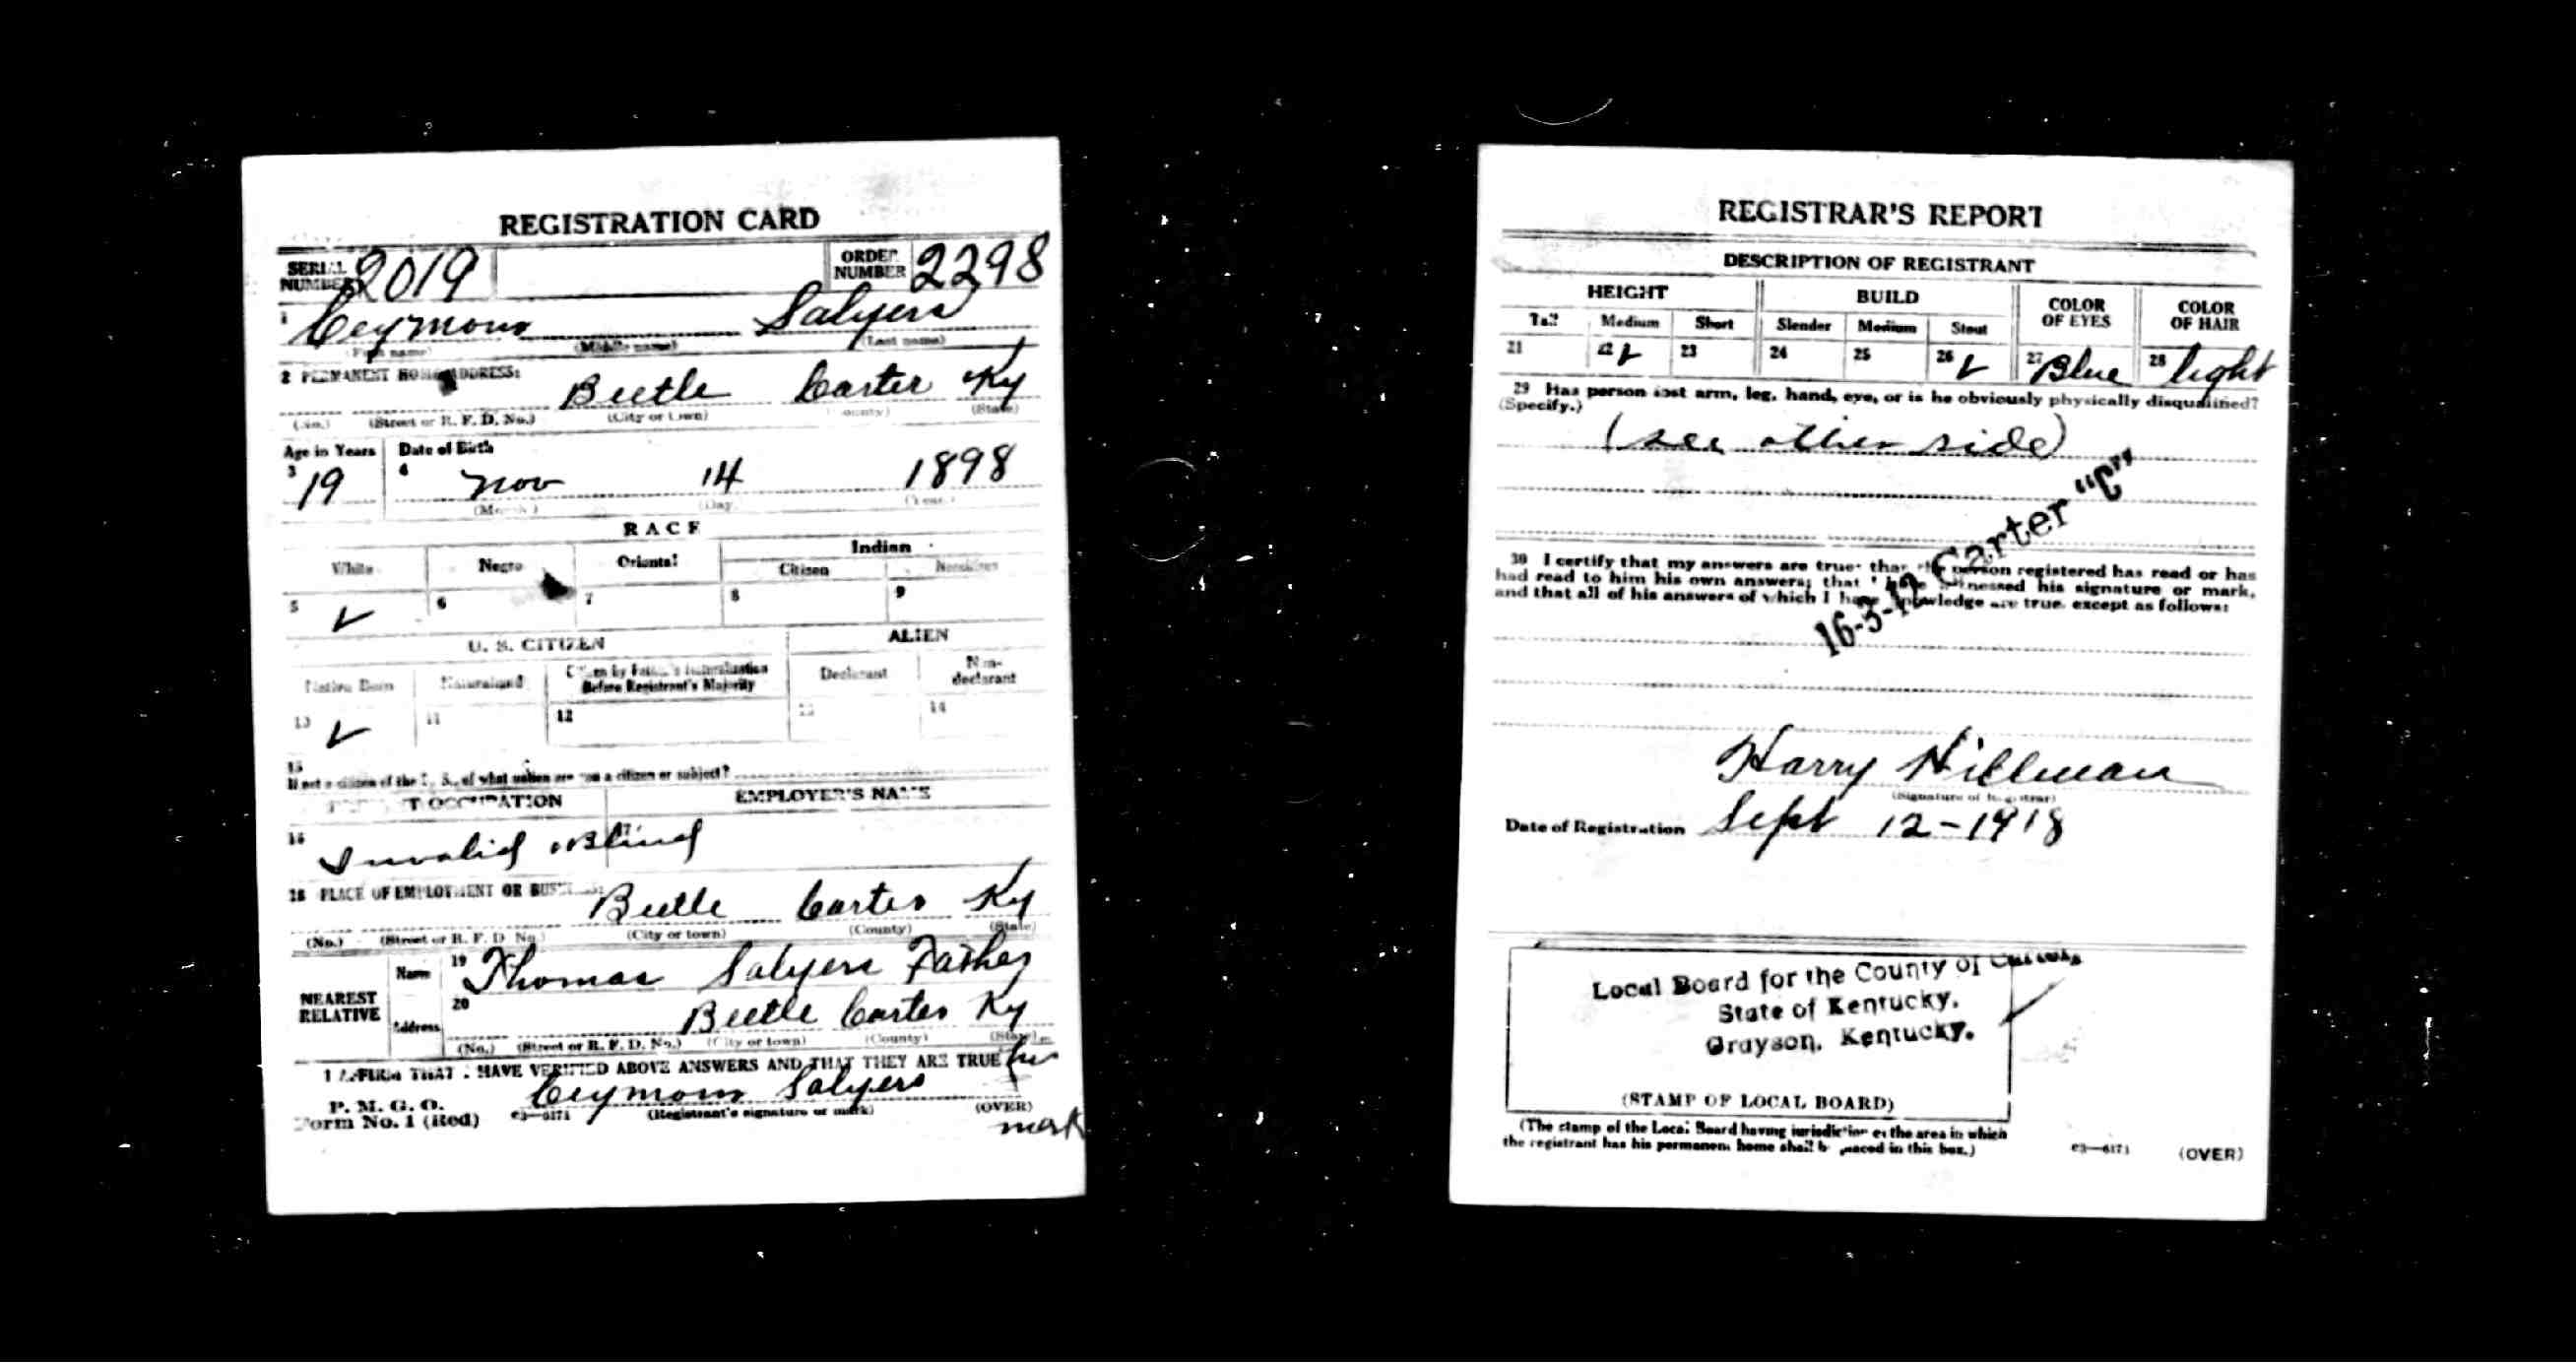 REGISTRATION CARD
SERIAL NUMBER 2019 ORDER NUMBER 2298
1 Ceymour Salyers
(First name) (Middle name) (Last name)
2 PERMANENT HOME ADDRESS:
Beetle Carter Ky
(No.) (Street or R. F. D. No.) (City or town) (County) (State)
Age in Years Date of Birth
3 19 4 Nov 14 1898
(Month) (Day) (Year)
RACE
White Negro Oriental Indian
Citizen Noncitizen
5 ✓ 6 7 8 9
U. S. CITIZEN ALIEN
Native Born Naturalized Citizen by Father's Naturalization Before Registrant's Majority Declarant Non-declarant
10 ✓ 11 12 13 14
15
If not a citizen of the U. S., of what nation are you a citizen or subject?
PRESENT OCCUPATION EMPLOYER'S NAME
16 Invalid Blind 17
18 PLACE OF EMPLOYMENT OR BUSINESS:
Beetle Carter Ky
(No.) (Street or R. F. D. No.) (City or town) (County) (State)
NEAREST RELATIVE
Name 19 Thomas Salyers Father
Address 20 Beetle Carter Ky
(No.) (Street or R. F. D. No.) (City or town) (County) (State)
I AFFIRM THAT I HAVE VERIFIED ABOVE ANSWERS AND THAT THEY ARE TRUE
P. M. G. O.
Form No. 1 (Red) c3—6171 Ceymour Salyers his mark
(Registrant's signature or mark) (OVER)
REGISTRAR'S REPORT
DESCRIPTION OF REGISTRANT
HEIGHT BUILD COLOR OF EYES COLOR OF HAIR
Tall Medium Short Slender Medium Stout
21 22 ✓ 23 24 25 26 ✓ 27 Blue 28 light
29 Has person lost arm, leg, hand, eye, or is he obviously physically disqualified?
(Specify.)
(see other side)
16-3-12 Carter "C"
30 I certify that my answers are true; that the person registered has read or has
had read to him his own answers; that I have witnessed his signature or mark,
and that all of his answers of which I have knowledge are true, except as follows:
Harry Hillman
(Signature of Registrar)
Date of Registration Sept 12-1918
Local Board for the County of Carter,
State of Kentucky,
Grayson, Kentucky.
(STAMP OF LOCAL BOARD)
(The stamp of the Local Board having jurisdiction of the area in which
the registrant has his permanent home shall be placed in this box.)
c3—6171 (OVER)